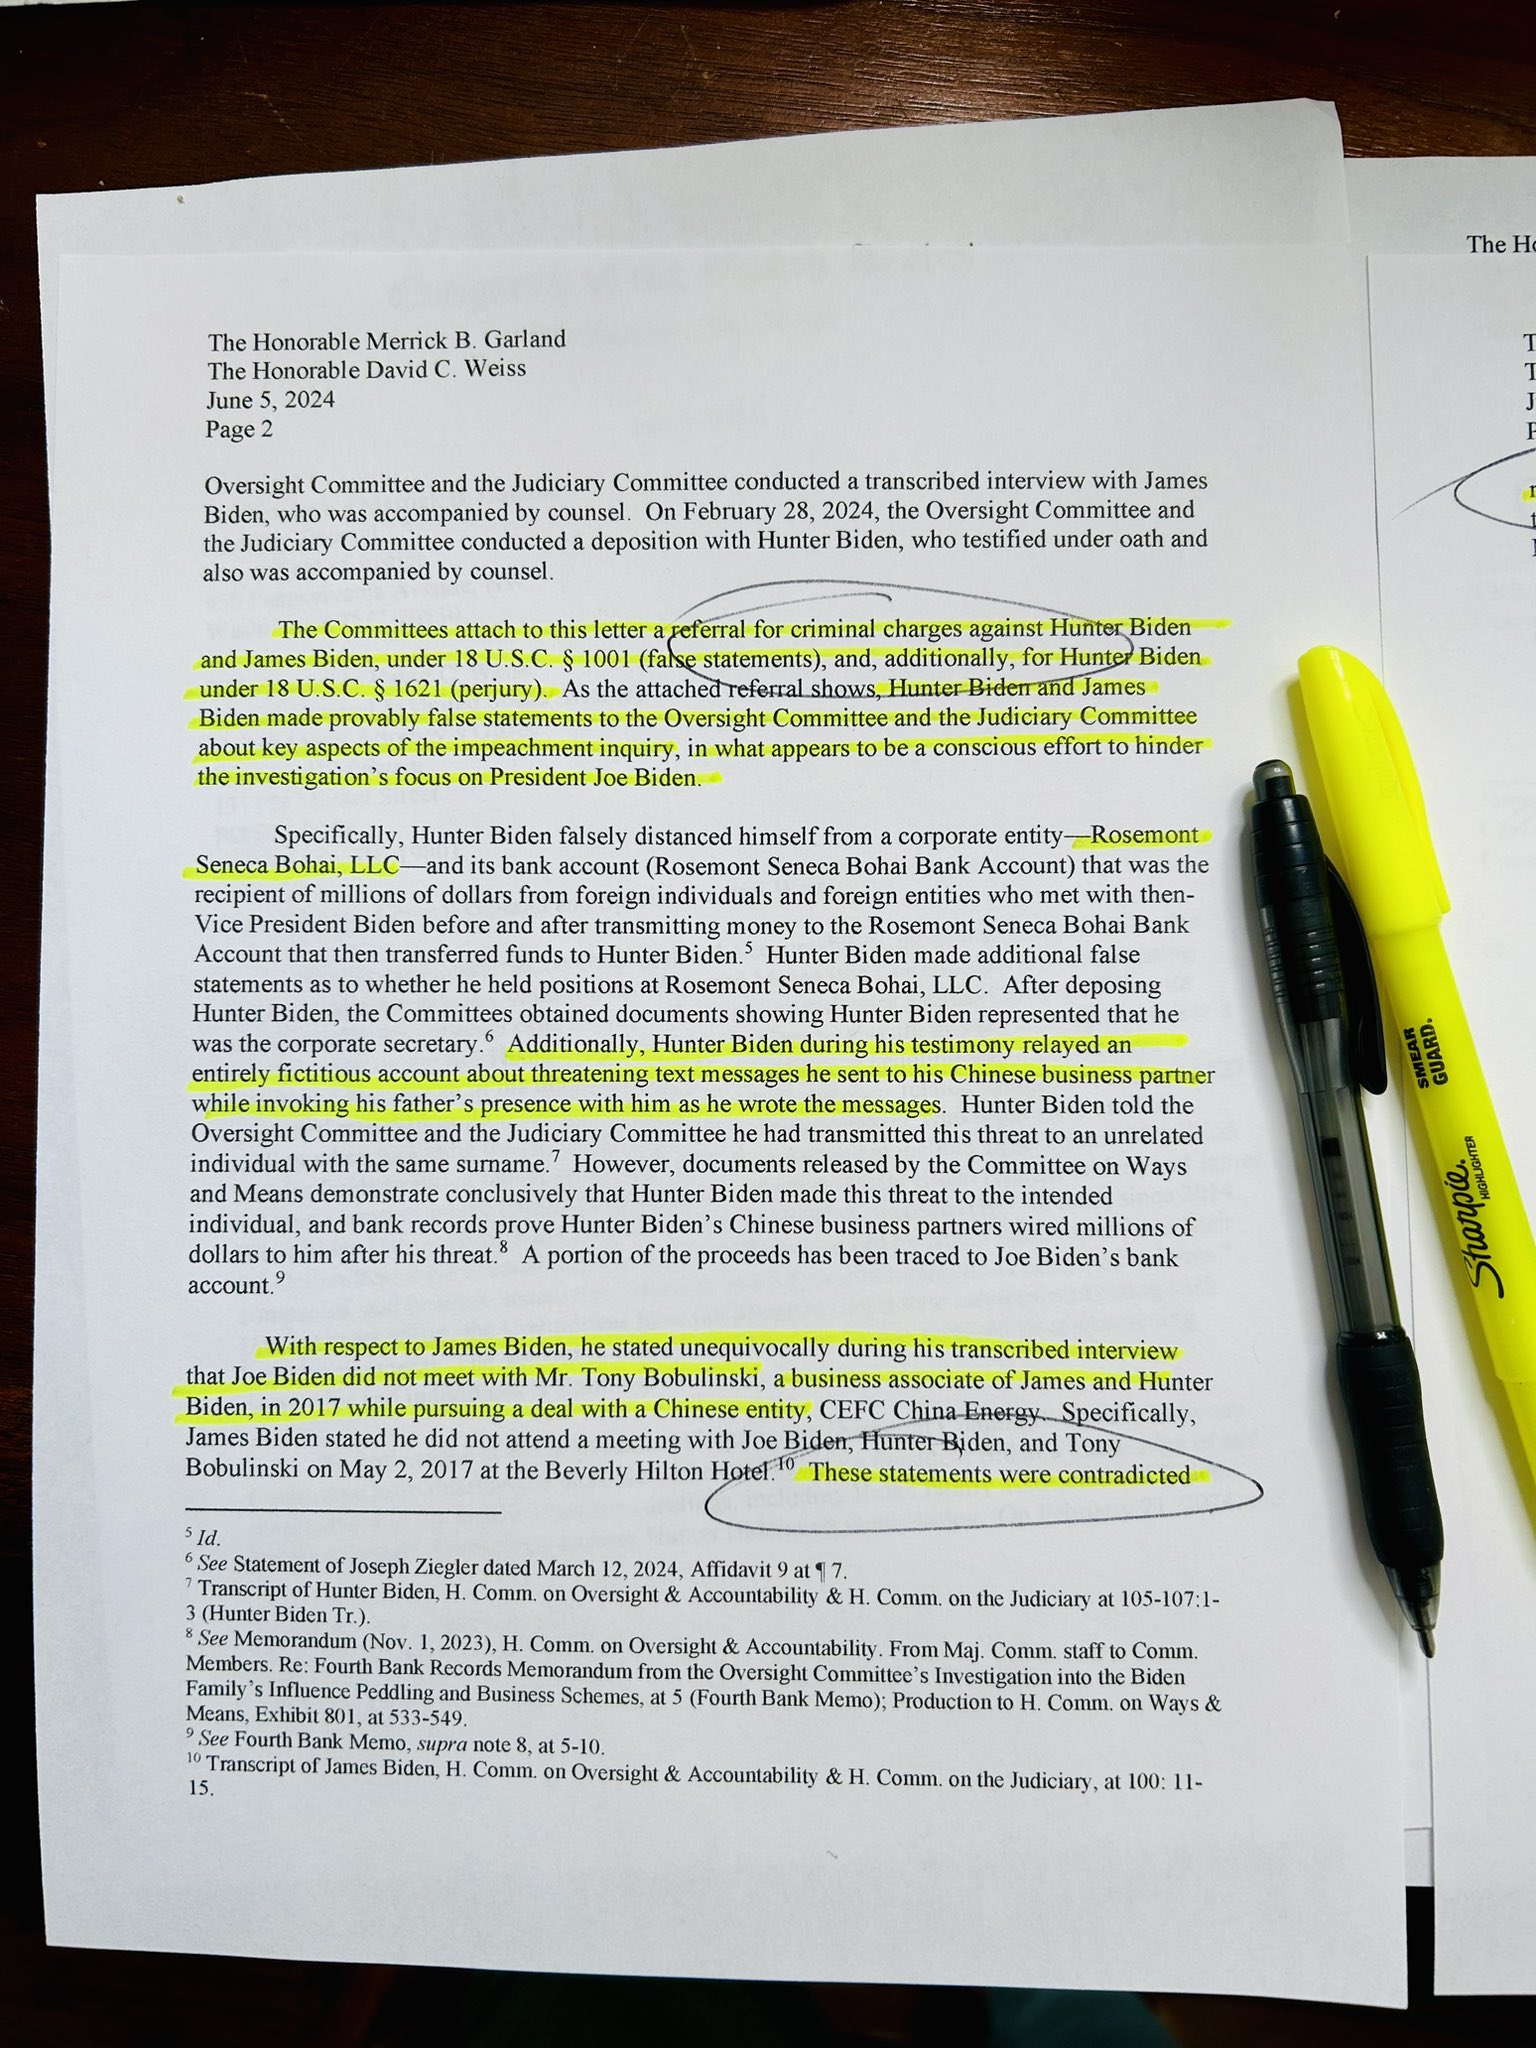 The Honorable Merrick B. Garland
The Honorable David C. Weiss
June 5, 2024
Page 2
Oversight Committee and the Judiciary Committee conducted a transcribed interview with James
Biden, who was accompanied by counsel.  On February 28, 2024, the Oversight Committee and
the Judiciary Committee conducted a deposition with Hunter Biden, who testified under oath and
also was accompanied by counsel.
The Committees attach to this letter a referral for criminal charges against Hunter Biden
and James Biden, under 18 U.S.C. § 1001 (false statements), and, additionally, for Hunter Biden
under 18 U.S.C. § 1621 (perjury).  As the attached referral shows, Hunter Biden and James
Biden made provably false statements to the Oversight Committee and the Judiciary Committee
about key aspects of the impeachment inquiry, in what appears to be a conscious effort to hinder
the investigation's focus on President Joe Biden.
Specifically, Hunter Biden falsely distanced himself from a corporate entity—Rosemont
Seneca Bohai, LLC—and its bank account (Rosemont Seneca Bohai Bank Account) that was the
recipient of millions of dollars from foreign individuals and foreign entities who met with then-
Vice President Biden before and after transmitting money to the Rosemont Seneca Bohai Bank
Account that then transferred funds to Hunter Biden.5  Hunter Biden made additional false
statements as to whether he held positions at Rosemont Seneca Bohai, LLC.  After deposing
Hunter Biden, the Committees obtained documents showing Hunter Biden represented that he
was the corporate secretary.6  Additionally, Hunter Biden during his testimony relayed an
entirely fictitious account about threatening text messages he sent to his Chinese business partner
while invoking his father's presence with him as he wrote the messages.  Hunter Biden told the
Oversight Committee and the Judiciary Committee he had transmitted this threat to an unrelated
individual with the same surname.7  However, documents released by the Committee on Ways
and Means demonstrate conclusively that Hunter Biden made this threat to the intended
individual, and bank records prove Hunter Biden's Chinese business partners wired millions of
dollars to him after his threat.8  A portion of the proceeds has been traced to Joe Biden's bank
account.9
With respect to James Biden, he stated unequivocally during his transcribed interview
that Joe Biden did not meet with Mr. Tony Bobulinski, a business associate of James and Hunter
Biden, in 2017 while pursuing a deal with a Chinese entity, CEFC China Energy.  Specifically,
James Biden stated he did not attend a meeting with Joe Biden, Hunter Biden, and Tony
Bobulinski on May 2, 2017 at the Beverly Hilton Hotel.10  These statements were contradicted
5 Id.
6 See Statement of Joseph Ziegler dated March 12, 2024, Affidavit 9 at ¶ 7.
7 Transcript of Hunter Biden, H. Comm. on Oversight & Accountability & H. Comm. on the Judiciary at 105-107:1-
3 (Hunter Biden Tr.).
8 See Memorandum (Nov. 1, 2023), H. Comm. on Oversight & Accountability. From Maj. Comm. staff to Comm.
Members. Re: Fourth Bank Records Memorandum from the Oversight Committee's Investigation into the Biden
Family's Influence Peddling and Business Schemes, at 5 (Fourth Bank Memo); Production to H. Comm. on Ways &
Means, Exhibit 801, at 533-549.
9 See Fourth Bank Memo, supra note 8, at 5-10.
10 Transcript of James Biden, H. Comm. on Oversight & Accountability & H. Comm. on the Judiciary, at 100: 11-
15.
The
SMEAR
GUARD.
Sharpie.
HIGHLIGHTER